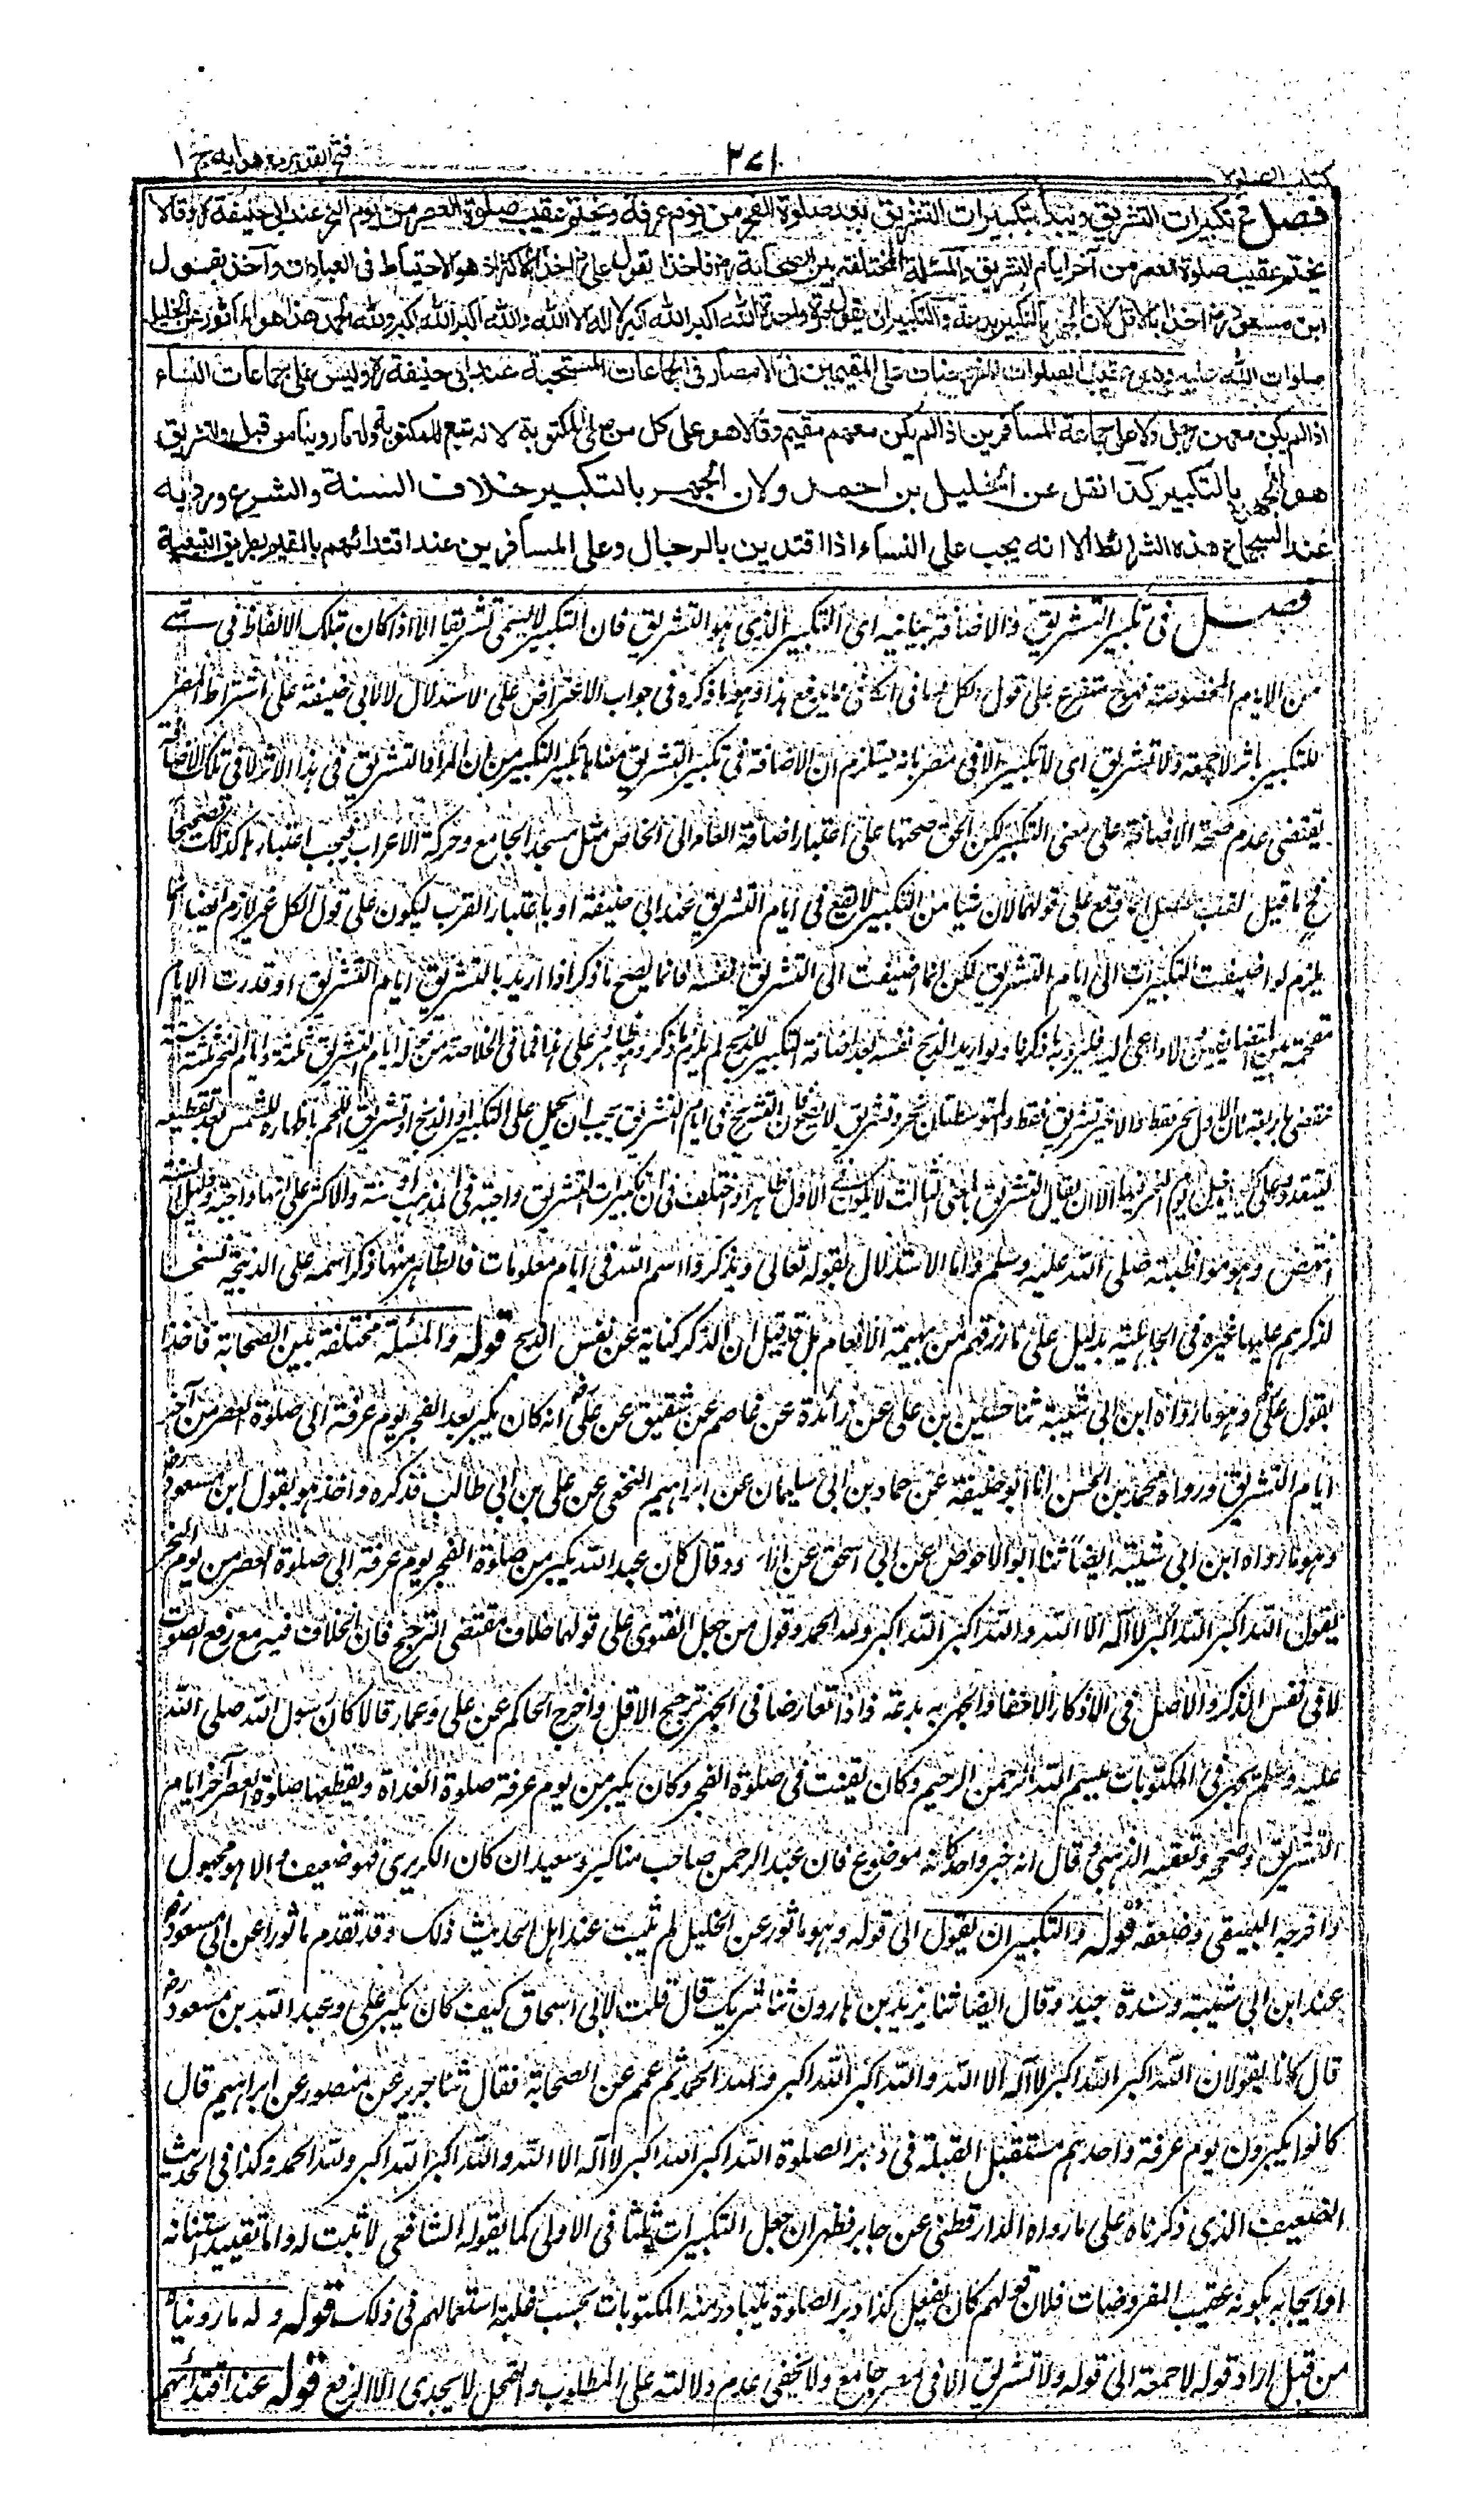 كتاب الصلوة
٣٧١
فتح القدير مع هدايه ج ١
فصل في تكبيرات التشريق ويبدأ بتكبيرات التشريق بعد صلوة الفجر من يوم عرفة ويختم عقيب صلوة العصر من يوم النحر عند ابى حنيفة وقالا
يختم عقيب صلوة العصر من آخر ايام التشريق والمسئلة المختلفة بين الصحابة فاخذا بقول علي اخذا بالاكثر اذ هو الاحتياط فى العبادات وآخذ بقول
ابن مسعود اخذا بالاقل لان الجهر بالتكبير بدعة والتكبير ان يقول مرة واحدة الله اكبر الله اكبر لا اله الا الله والله اكبر الله اكبر ولله الحمد هذا هو المأثور عن الخليل
صلوات الله عليه وهو عقيب الصلوات المفروضات على المقيمين فى الامصار فى الجماعات المستحبة عند ابى حنيفة وليس على جماعات النساء
اذا لم يكن معهن رجل ولا على جماعة المسافرين اذا لم يكن معهم مقيم وقالا هو على كل من صلى المكتوبة لانه تبع للمكتوبة وله ما روينا من قبل والتشريق
هو الجهر بالتكبير كذا نقل عن الخليل بن احمد ولان الجهر بالتكبير خلاف السنة والشرع ورد به
عند استجماع هذه الشرائط الا انه يجب على النساء اذا اقتدين بالرجال وعلى المسافرين عند اقتدائهم بالمقيم بطريق التبعية
فصل فى تكبير التشريق والاضافة بيانية اى التكبير الذى هو التشريق فان التكبير لا يسمى تشريقا الا اذا كان بتلك الالفاظ فى شئ
من الايام المخصوصة فهو متفرع على قول الكل وما فى الكافى مما يدفع هذا وهو ما ذكره فى جواب الاعتراض على الاستدلال لابى حنيفة على اشتراط المصر
للتكبير باثر لا جمعة ولا تشريق اى لا تكبير الا فى مصر بانه يستلزم ان الاضافة فى تكبير التشريق معناها تكبير التكبير من ان المراد بالتشريق فى هذا الاثر لا فى تلك الاضافة
يقتضى عدم صحة الاضافة على معنى التكبير لكن الحق صحتها على اعتبار اضافة العام الى الخاص مثل مسجد الجامع وحركة الاعراب فيجب اعتبارها كذلك تصحيحا
فح ما قيل لقب الفصل انما وقع على قولهما لان شيأ من التكبير لا يقع فى ايام التشريق عند ابى حنيفة او باعتبار القرب ليكون على قول الكل غير لازم ايضا انما
يلزم لو اضيفت التكبيرات الى ايام التشريق لكن انما اضيفت الى التشريق نفسه فانما يصح ما ذكر اذا اريد بالتشريق ايام التشريق او قدرت الايام
مقحمة بين المتضايفين ولا داعى اليه فليرد به ما ذكرنا ولو اريد الذبح نفسه بعد اضافة التكبير للذبح لم يلزم ما ذكر وهو ظاهر على انما فى الخلاصة من قوله ايام التشريق ثلثة وايام النحر ثلثة
منقضى باربعة فان الاول نحر فقط والاخير تشريق فقط والمتوسطان نحر وتشريق لا يصح فان التشريق فى ايام التشريق يجب ان يحمل على التكبير او الذبح او تشريق اللحم باظهاره للشمس بعد تقطيعه
ليتقدد وعلى كل يدخل يوم النحر فيها الا ان يقال التشريق بالمعنى الثالث لا يكون فى الاول ظاهرا واختلف فى ان تكبيرات التشريق واجبة فى المذهب او سنة والاكثر على انها واجبة ودليل السنة
انهض وهو مواظبته صلى الله عليه وسلم واما الاستدلال بقوله تعالى ويذكروا اسم الله فى ايام معلومات فالظاهر منها ذكر اسمه على الذبيحة نسخا
لذكرهم عليها غيره فى الجاهلية بدليل على ما رزقهم من بهيمة الانعام بل قد قيل ان الذكر كناية عن نفس الذبح قوله والمسئلة مختلفة بين الصحابة فاخذا
بقول علي وهو ما رواه ابن ابى شيبة ثنا حسين بن على عن زائدة عن عاصم عن شقيق عن علي انه كان يكبر بعد الفجر يوم عرفة الى صلوة العصر من آخر
ايام التشريق ورواه محمد بن الحسن انا ابو حنيفة عن حماد بن ابى سليمان عن ابراهيم النخعى عن على بن ابى طالب فذكره واخذ هو بقول ابن مسعود
وهو ما رواه ابن ابى شيبة ايضا ثنا ابو الاحوص عن ابى اسحق عن الاسود قال كان عبد الله يكبر من صلوة الفجر يوم عرفة الى صلوة العصر من يوم النحر
يقول الله اكبر الله اكبر لا آله الا الله والله اكبر الله اكبر ولله الحمد وقول من جعل الفتوى على قولهما خلاف مقتضى الترجيح فان الخلاف فيه مع رفع الصوت
لا فى نفس الذكر والاصل فى الاذكار الاخفا والجهر به بدعة فاذا تعارضا فى الجهر ترجح الاقل واخرج الحاكم عن على وعمار قالا كان رسول الله صلى الله
عليه وسلم يجهر فى المكتوبات ببسم الله الرحمن الرحيم وكان يقنت فى صلوة الفجر وكان يكبر من يوم عرفة صلوة الغداة ويقطعها صلوة العصر آخر ايام
التشريق وصححه وتعقبه الذهبى وقال انه خبر واه كانه موضوع فان عبد الرحمن صاحب مناكير وسعيد ان كان الكريزى فهو ضعيف والا هو مجهول
واخرجه البيهقى وضعفه قوله والتكبير ان يقول الى قوله وهو ماثور عن الخليل لم يثبت عند اهل الحديث ذلك وقد تقدم ماثورا عن ابن مسعود
عند ابن ابى شيبة وسنده جيد وقال ايضا ثنا يزيد بن هارون ثنا شريك قال قلت لابى اسحاق كيف كان يكبر على وعبد الله بن مسعود
قال كانا يقولان الله اكبر الله اكبر لا آله الا الله والله اكبر الله اكبر ولله الحمد ثم عمم عن الصحابة فقال ثنا جرير عن منصور عن ابراهيم قال
كانوا يكبرون يوم عرفة واحدهم مستقبل القبلة فى دبر الصلوة الله اكبر الله اكبر لا آله الا الله والله اكبر الله اكبر ولله الحمد وكذا فى الحديث
الضعيف الذى ذكرناه على ما رواه الدارقطنى عن جابر فظهر ان جعل التكبيرات ثلثا فى الاولى كما يقوله الشافعى لا ثبت له واما تقييد استنانه
او ايجابه بكونه عقيب المفروضات فلان قولهم كان يفعل كذا دبر الصلوة يتبادر منه المكتوبات بحسب غلبة استعمالهم فى ذلك قوله وله ما روينا
من قبل اراد قوله لا جمعة الى قوله ولا تشريق الا فى مصر جامع ولا يخفى عدم دلالته على المطلوب والتمحل لا يجدى الا الدفع قوله عند اقتدائهم